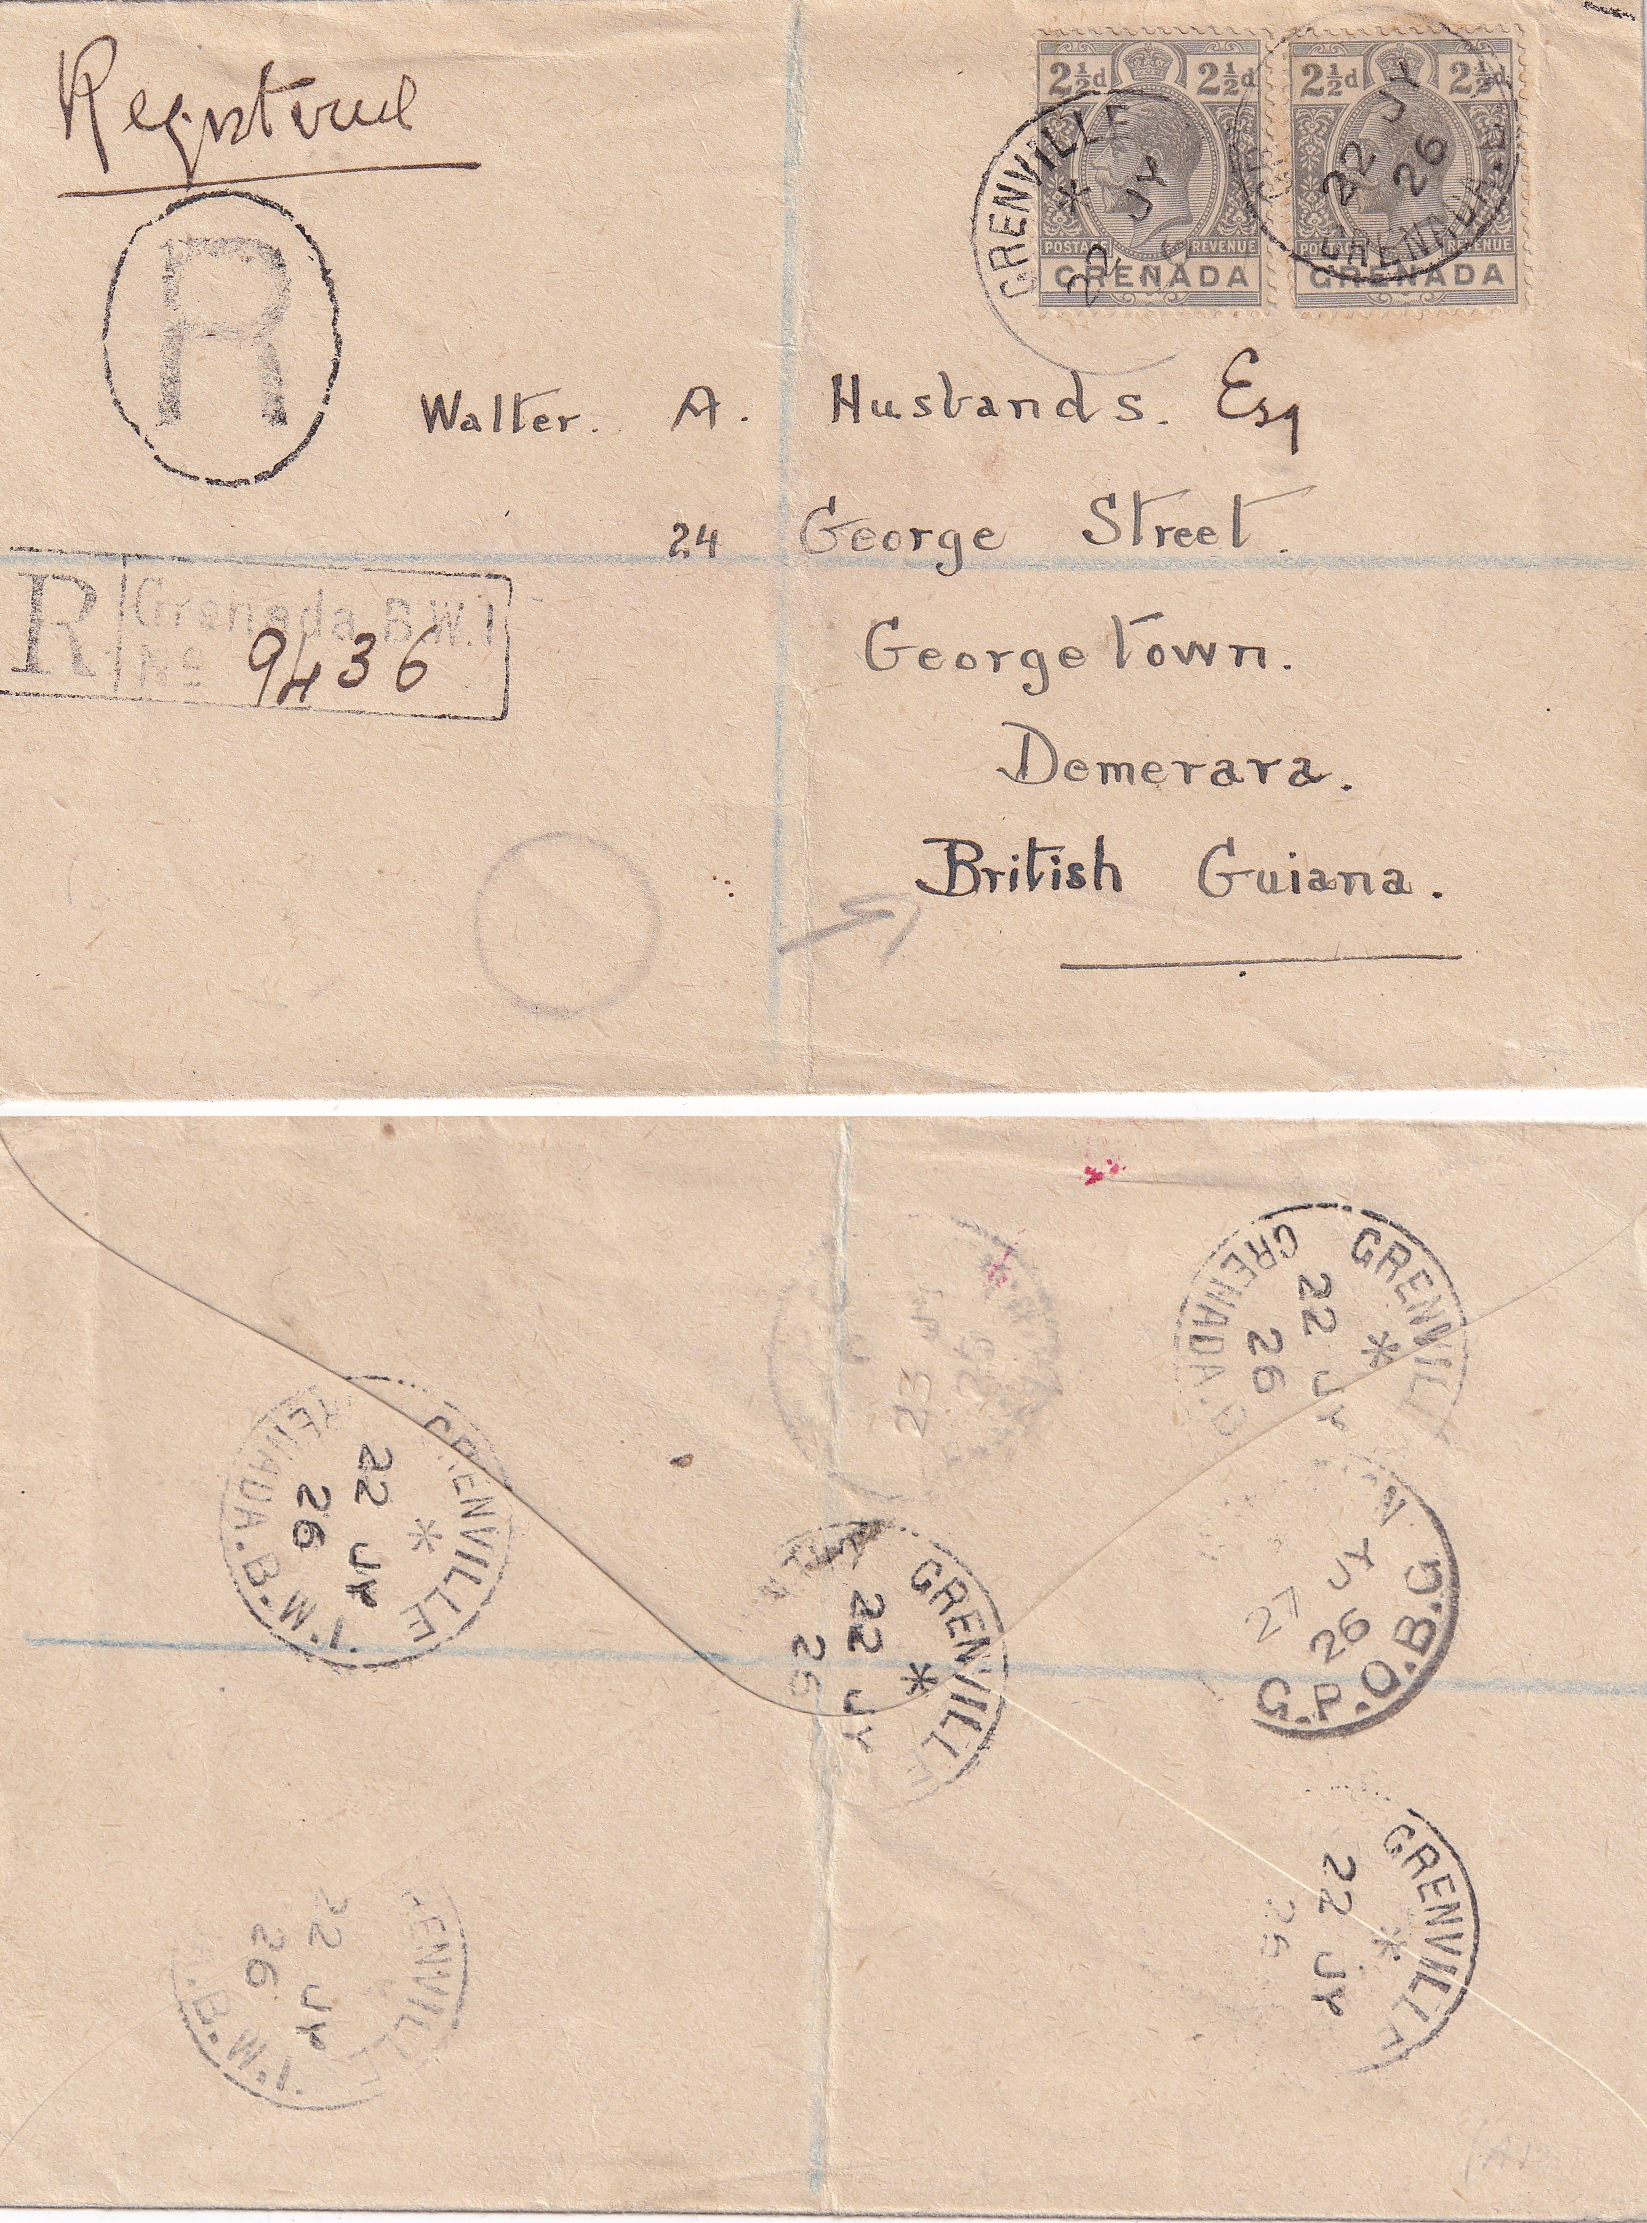 Registered
2½d 2½d
POSTAGE REVENUE
GRENADA
2½d 2½d
POSTAGE REVENUE
GRENADA
GRENVILLE
*
22 JY
22 JY
26
GRENADA.B
R
Walter. A. Husbands. Esq
24 George Street.
Georgetown.
Demerara.
British Guiana.
R Grenada B.W.I
No 9436
GRENVILLE
*
22 JY
26
GRENADA.B
23
GRENVILLE
*
22 JY
26
GRENADA.B.W.I.
GRENVILLE
*
22 JY
26
27 JY
26
G.P.O.B.G
GRENVILLE
*
22 JY
26
ENVILLE
22 JY
26
.B.W.I.